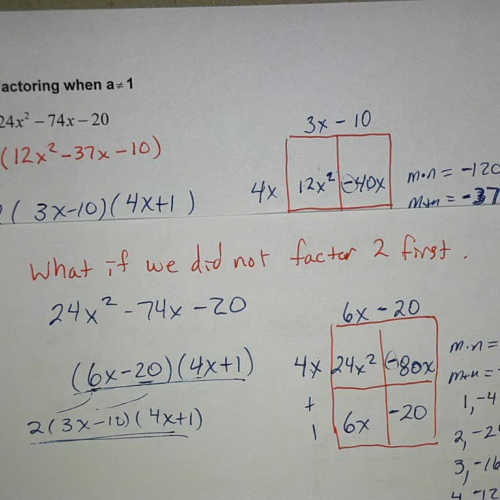 actoring when a≠1
24x² – 74x – 20
(12x² – 37x – 10)
2( 3x-10)(4x+1)
3x - 10
4x 12x² -40x
m·n = -120
m+n = -37
What if we did not factor 2 first.
24x² - 74x - 20
(6x-20)(4x+1)
2(3x-10)(4x+1)
6x - 20
4x 24x² -80x
+
1 6x -20
m·n =
m+n = -
1, -4
2, -2
3, -16
4, -12